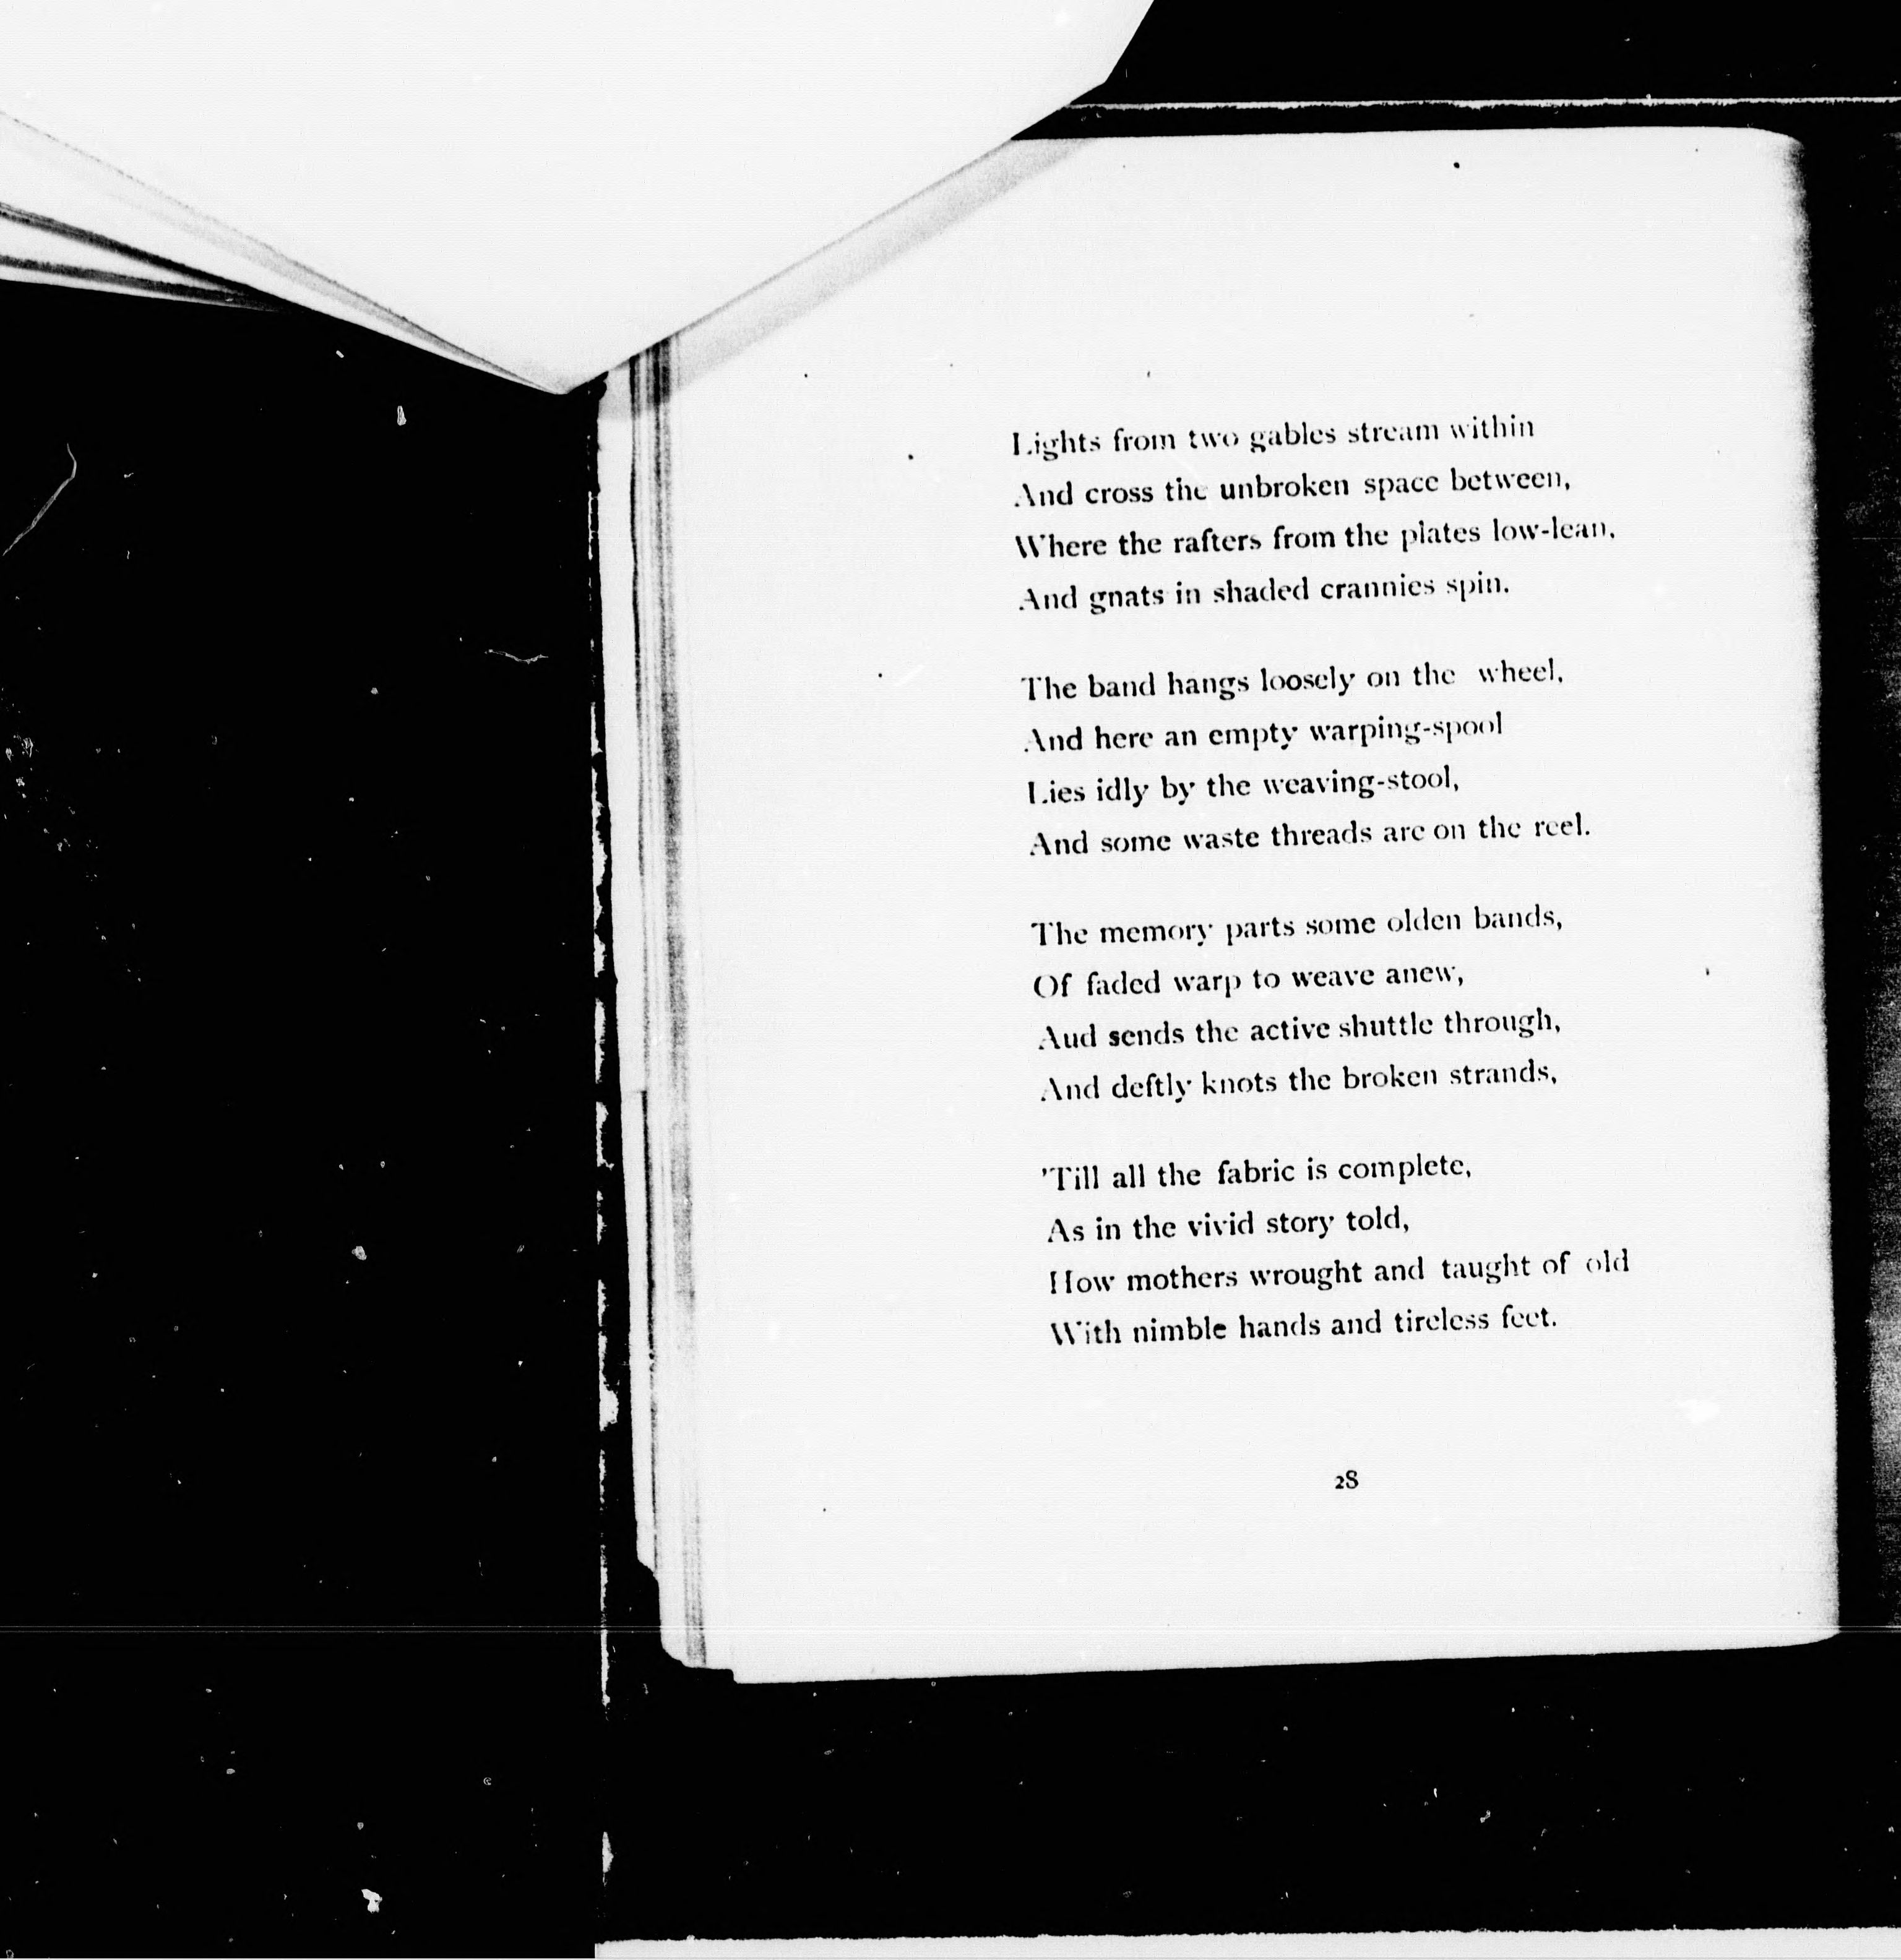 Lights from two gables stream within
And cross the unbroken space between,
Where the rafters from the plates low-lean,
And gnats in shaded crannies spin.
The band hangs loosely on the wheel,
And here an empty warping-spool
Lies idly by the weaving-stool,
And some waste threads are on the reel.
The memory parts some olden bands,
Of faded warp to weave anew,
Aud sends the active shuttle through,
And deftly knots the broken strands,
'Till all the fabric is complete,
As in the vivid story told,
How mothers wrought and taught of old
With nimble hands and tireless feet.
28